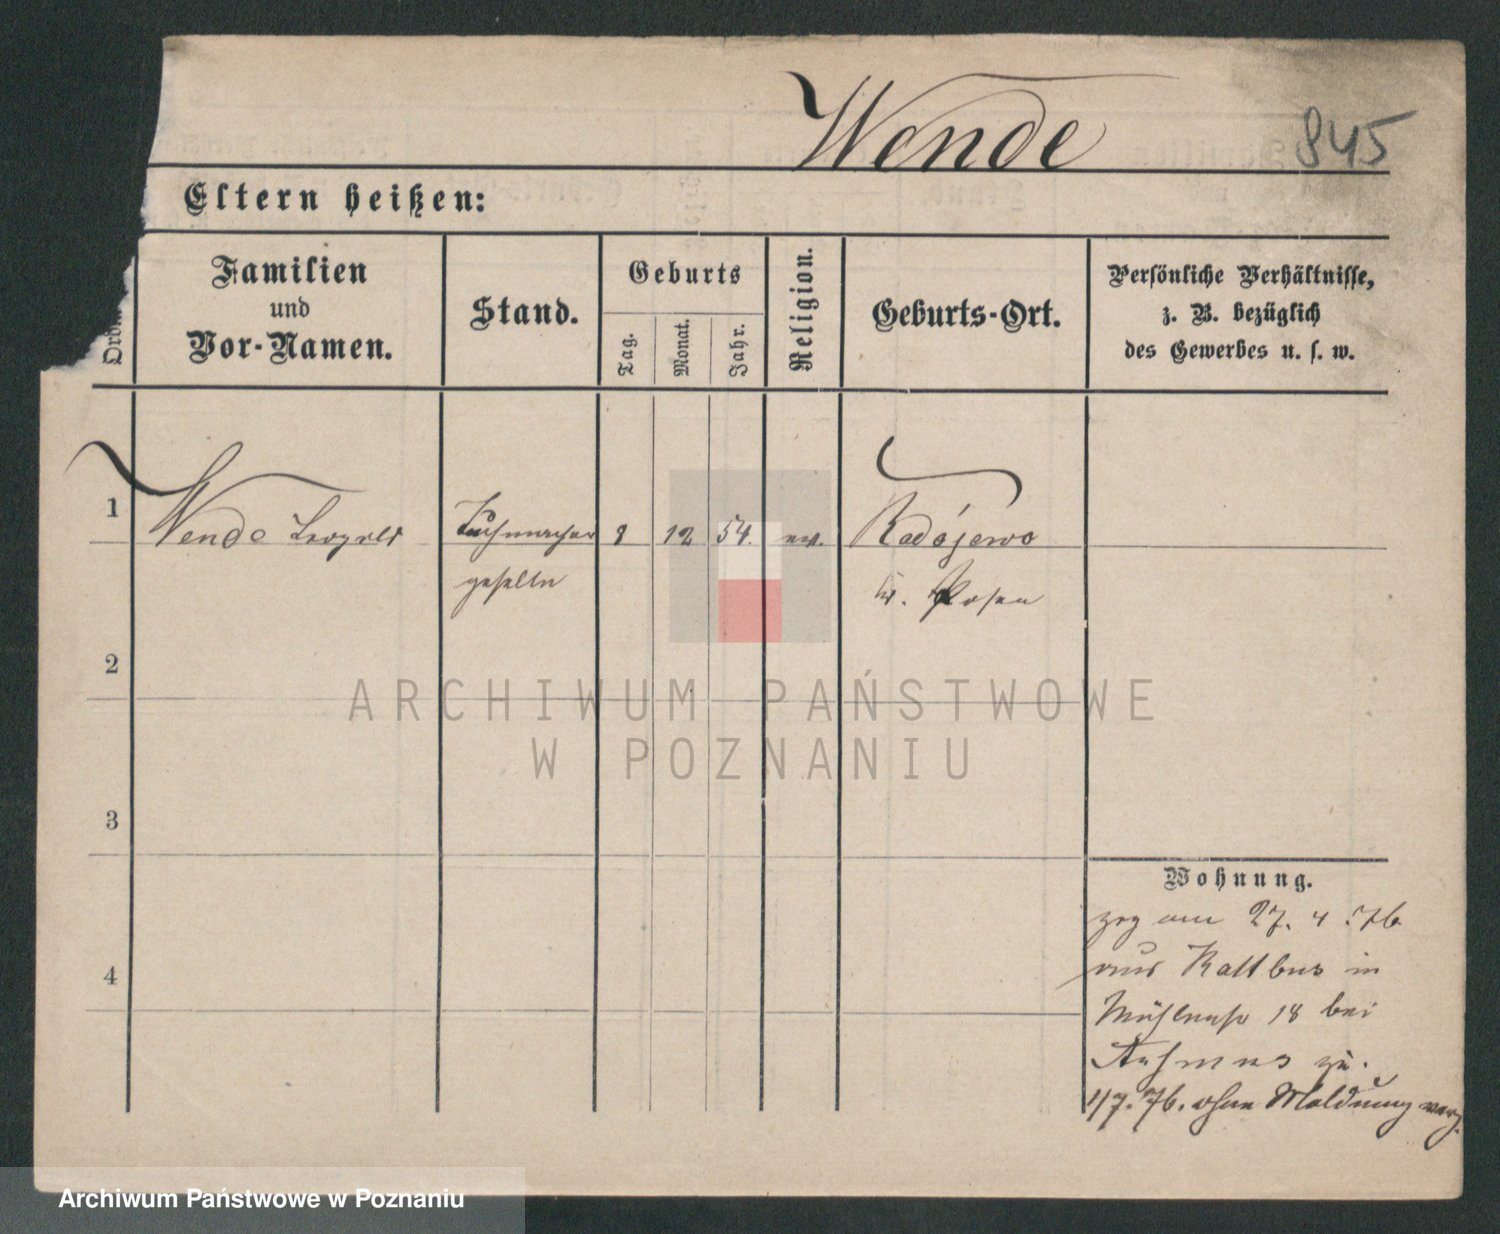 Wende 845
Eltern heißen:
Ordn
Familien
und
Vor-Namen.
Stand.
Geburts
Tag.
Monat.
Jahr.
Religion.
Geburts-Ort.
Persönliche Verhältnisse,
z. B. bezüglich
des Gewerbes u. s. w.
1 Wende Leopold Tuchmacher 8 12 54. ev. Radójewo
geselle Kr. Posen
2
3
4
Wohnung.
zog am 27. 4 76
aus Kottbus in
Mühlenstr 18 bei
zu.
1/7. 76. ohne Meldung verz.
ARCHIWUM PAŃSTWOWE
W POZNANIU
Archiwum Państwowe w Poznaniu